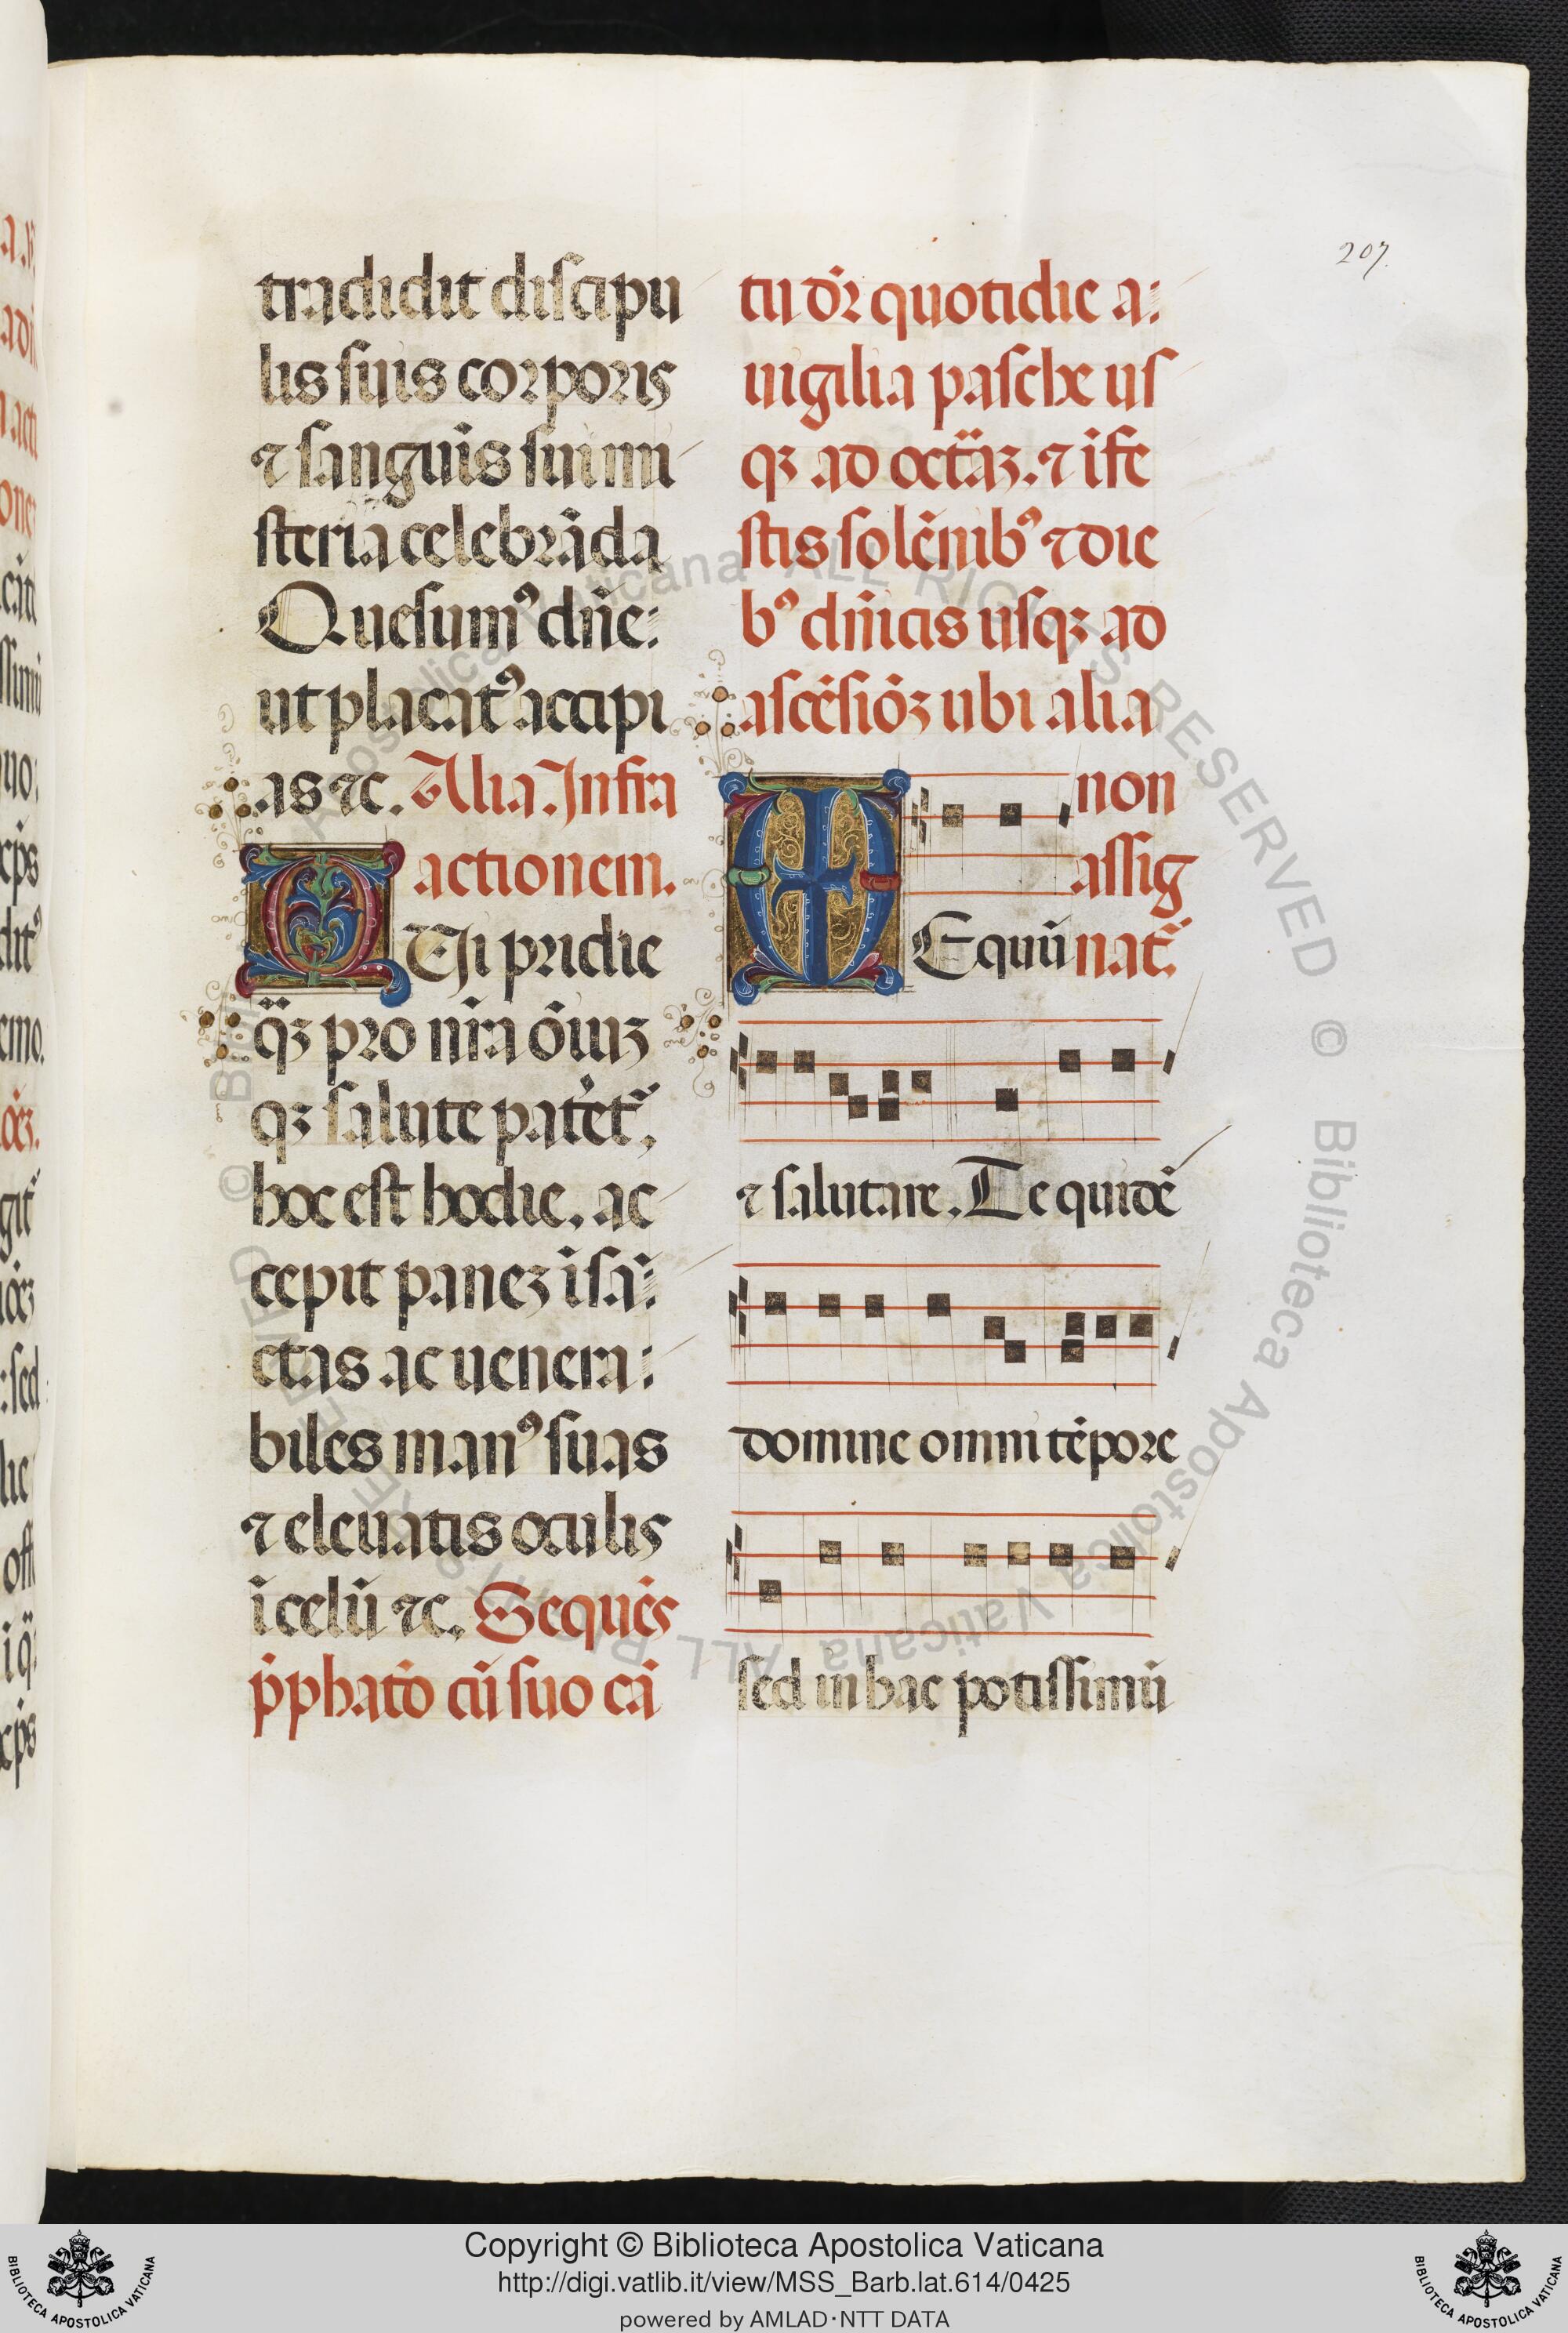 207.
tradidit discipu
lis suis corporis
⁊ sanguīs sui mi
steria celebrāda
Quesumꝰ dn̄e:
ut placatꝰ accipi
as ⁊c. Alia. Infra
actionem.
Qui pridie
q̈ꝫ pro nr̄a ōiuꝫ
qꝫ salute patet᷑,
hoc est hodie. ac
cepit paneꝫ ī sā:
ctas ac uenera:
biles manꝰ suas
⁊ eleuatis oculis
ī celū ⁊c. Sequēs
p̄phatō cū suo cā
tu dr̄ quotidie a:
uigilia pasche us
qꝫ ad octāꝫ. ⁊ ī fe
stis solēnibꝰ ⁊ die
bꝰ dn̄icis usqꝫ ad
ascēsiōꝫ ubi alia
non
assig
nat᷑.
VEquū
⁊ salutare. Te quidē
domine omni tēpore
sed in hac potissimū
Copyright © Biblioteca Apostolica Vaticana
http://digi.vatlib.it/view/MSS_Barb.lat.614/0425
powered by AMLAD·NTT DATA
BIBLIOTECA APOSTOLICA VATICANA
BIBLIOTECA APOSTOLICA VATICANA